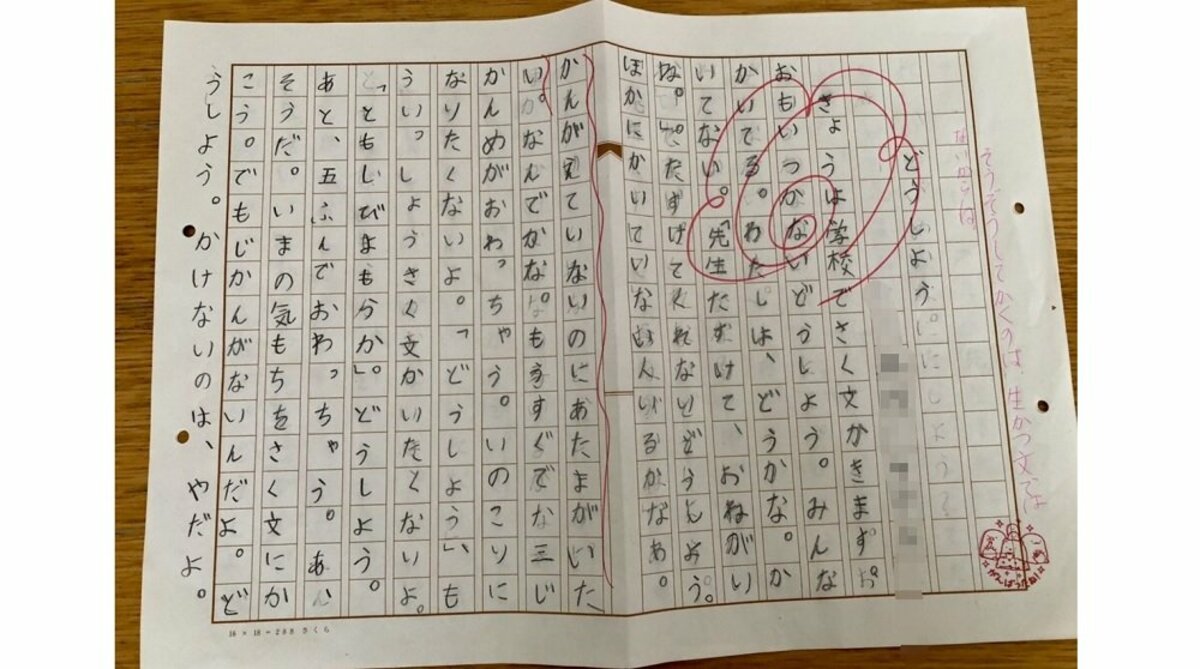 そうぞうしてかくのは、生かつ文では
ないからね
どうしよう
きょうは学校でさく文かきます。
おもいつかないどうしよう。みんな
かいてる。わたしは、どうかな。か
いてない。「先生たすけて、おねがい
な。」たすけてくれないどうしよう。
ほかにかいていない人いるかなぁ。
かんがえていないのにあたまがいた
い。なんでかな。もうすぐで三じ
かんめがおわっちゃう。いのこりに
なりたくないよ。「どうしよう」、も
ういっしょうさく文かいたくないよ。
どうしよう。
あと、五ふんでおわっちゃう。あ、
そうだ。いまの気もちをさく文にか
こう。でもじかんがないんだよ。ど
うしよう。かけないのは、やだよ。
16 × 18 = 288 さくら
がんばったね!